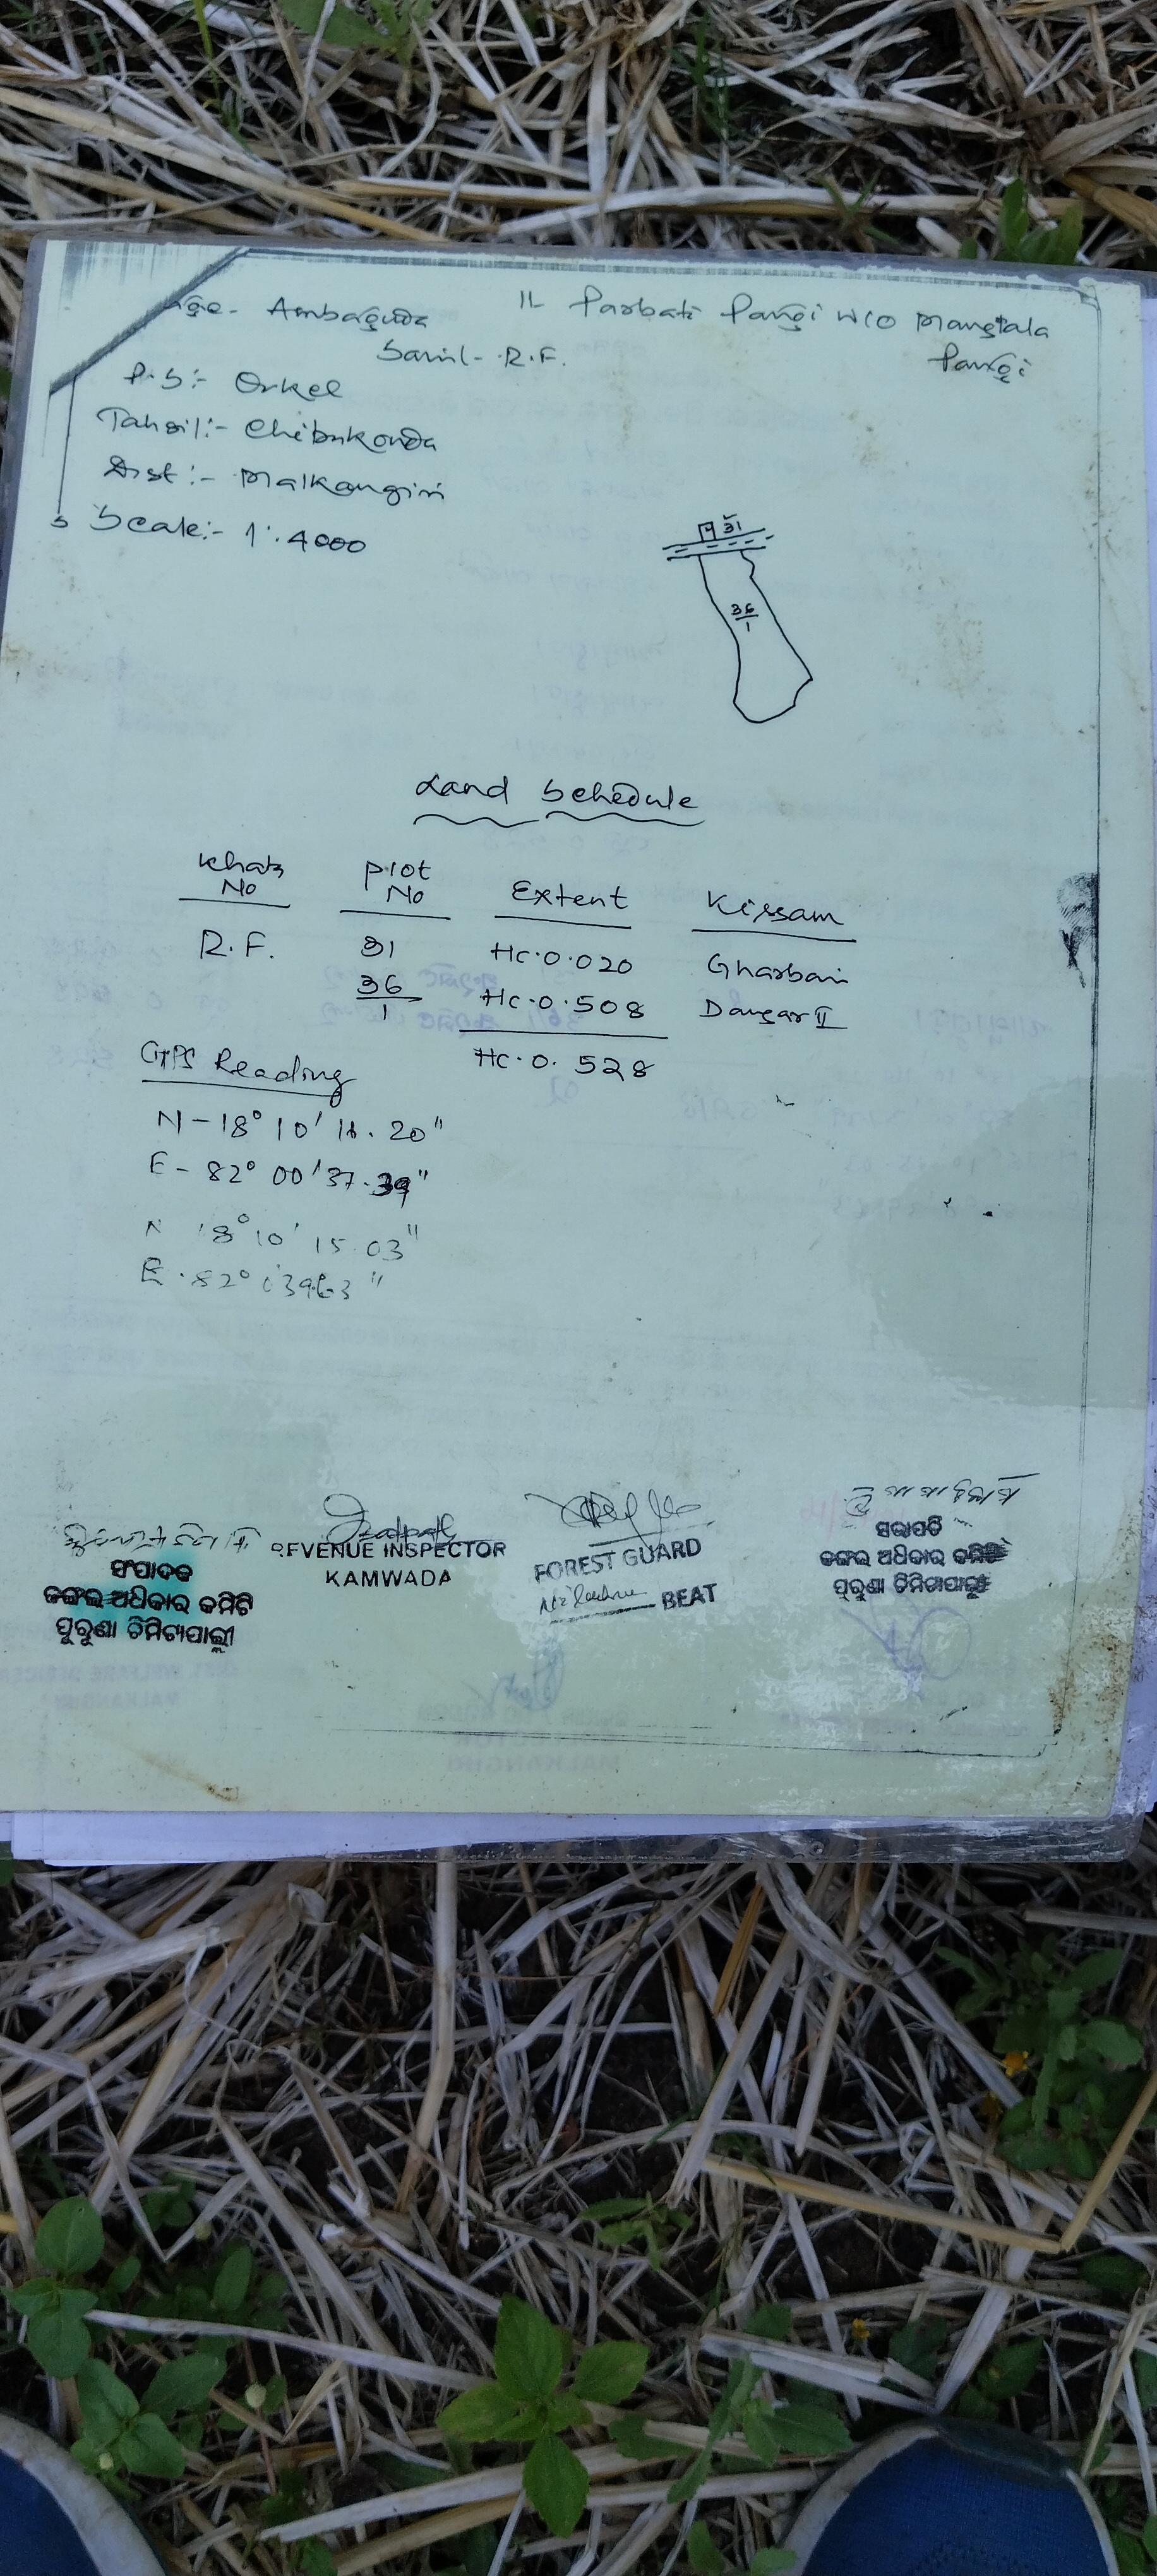 Ambaguda
11 Parbati Pangi W/O Mangtala
Pangi
Samil- R.F.
P.S:- Orkel
Tahsil:- Chitrakonda
Dist:- Malkangiri
Scale:- 1:4000
31
36/1
Land Schedule
Khata No Plot No Extent Kissam
R.F. 31 Hc.0.020 Gharbari
36/1 Hc.0.508 Dangar II
Hc.0.528
GPS Reading
N-18° 10' 18.20"
E-82° 00' 37.39"
N 18° 10' 15.03"
E.82°
ସଂପାଦକ
ଜଙ୍ଗଲ ଅଧିକାର କମିଟି
ପୁରୁଣା ଚିମିଟାପାଲ୍ଲୀ
REVENUE INSPECTOR
KAMWADA
FOREST GUARD
BEAT
ସଭାପତି
ଜଙ୍ଗଲ ଅଧିକାର କମିଟି
ପୁରୁଣା ଚିମିଟାପାଲ୍ଲୀ